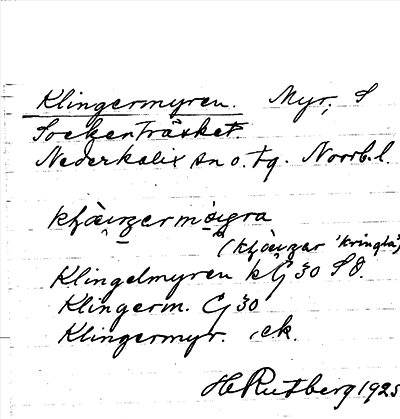 Klingermyren. Myr, S
Sockenträsket.
Nederkalix sn o. tg. Norrb. l.
Klingelmyren kG 30 S8.
Klingerm. G 30
Klingermyr. , ek.
H Rutberg 1925